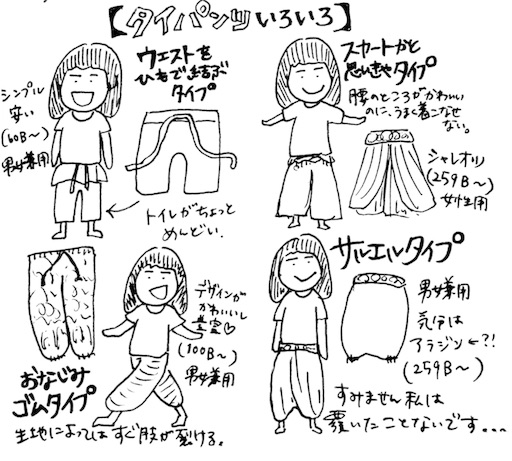 【タイパンツいろいろ】
ウエストを
ひもで結ぶ
タイプ
シンプル
安い
(60B〜)
男女兼用
トイレがちょっと
めんどい.
スカートかと
思いきやタイプ
腰のところがかわいい
のに、うまく着こなせ
ない。
シャレオツ
(259B〜)
女性用
おなじみ
ゴムタイプ
デザインが
かわいいし
豊富♡
(100B〜)
男女兼用
生地によってはすぐ股が裂ける。
サルエルタイプ
男女兼用
気分は
アラジン←?!
(259B〜)
すみません私は
履いたことないです...